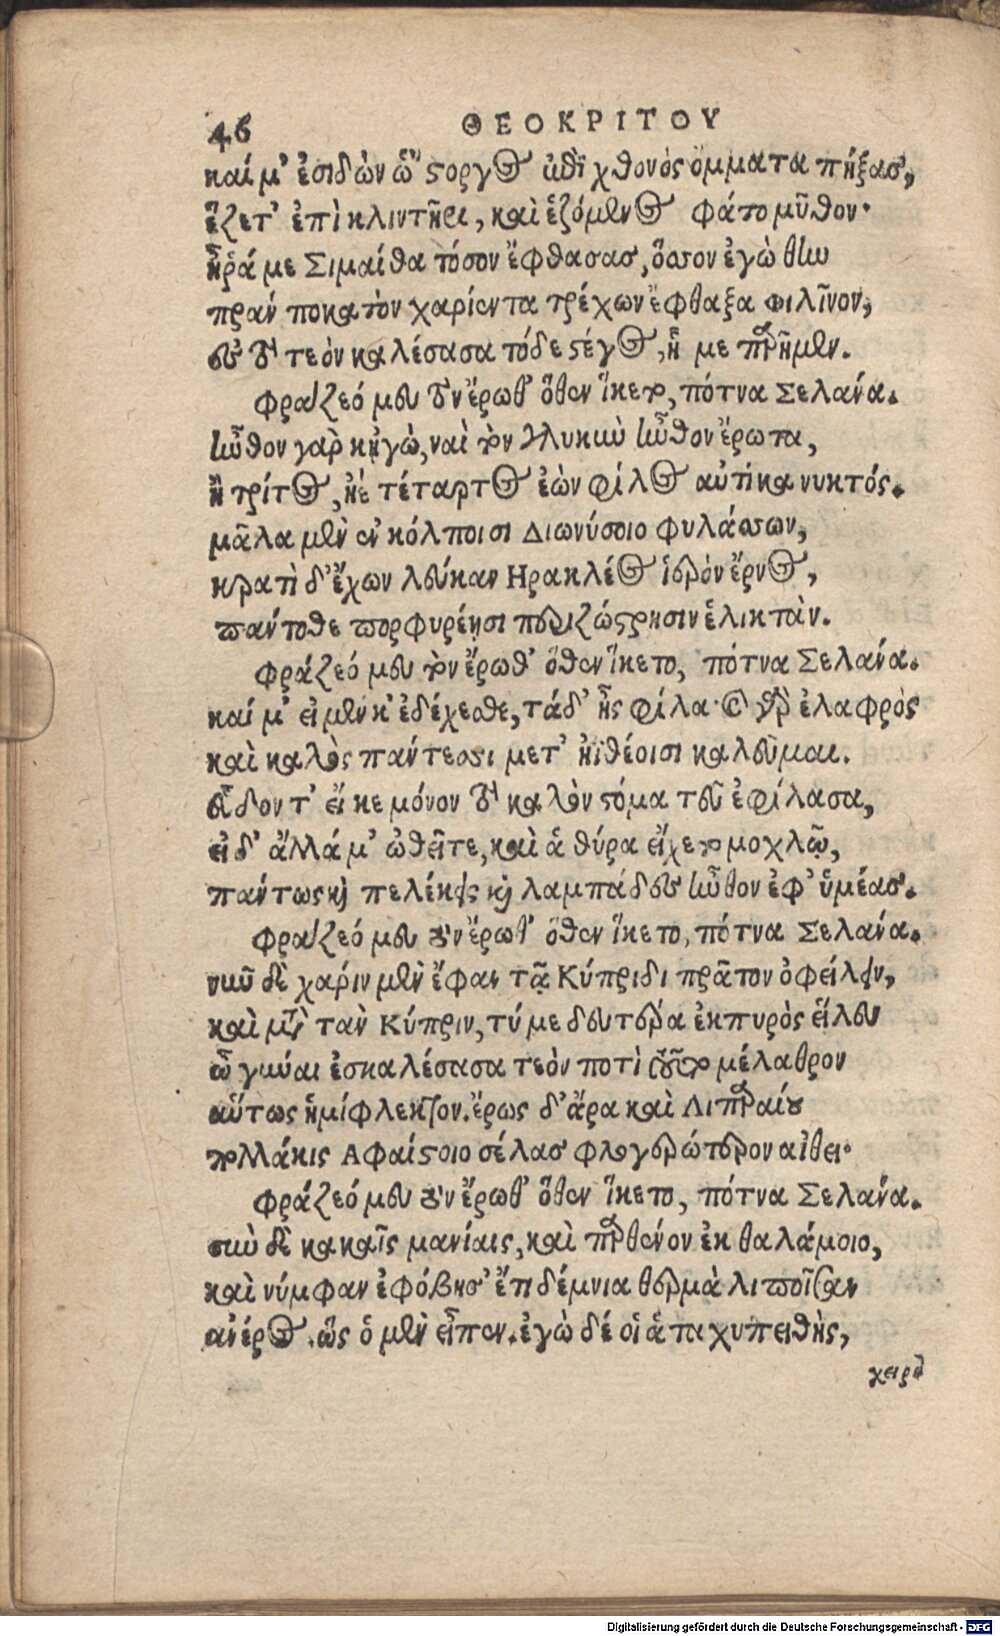 46 ΘΕΟΚΡΙΤΟΥ
καί μ' ἐσιδὼν ὥστοργος ἐπὶ χθονὸς ὄμματα πήξας,
ἕζετ' ἐπὶ κλιντῆρι, καὶ ἑζόμενος φάτο μῦθον·
ἦῥά με Σιμαίθα τόσον ἔφθασας, ὅσσον ἐγὼ θὴν
πράν ποκα τὸν χαρίεντα τρέχων ἔφθαξα Φιλῖνον,
ἐς τὸ τεὸν καλέσασα τόδε στέγος, ἤ με παρῆμεν.
φράζεό μευ τὸν ἔρωθ' ὅθεν ἵκετο, πότνα Σελάνα.
ἦνθον γὰρ κἠγὼ, ναὶ τὸν γλυκὺν ἦνθον ἔρωτα,
ἢ τρίτος, ἠέ τέταρτος ἐὼν φίλος αὐτίκα νυκτός.
μᾶλα μὲν ἐν κόλποισι Διονύσοιο φυλάσσων,
κρατὶ δ' ἔχων λεύκαν Ηρακλέος ἱερὸν ἔρνος,
παντόθε πορφυρέῃσι περιζώστρῃσιν ἑλικτὰν.
φράζεό μευ τὸν ἔρωθ' ὅθεν ἵκετο, πότνα Σελάνα.
καί μ' εἰ μέν κ' ἐδέχεσθε, τάδ' ἦς φίλα· καὶ γὰρ ἐλαφρὸς
καὶ καλὸς πάντεσσι μετ' ἠϊθέοισι καλεῦμαι.
εὗδον τ' εἴ κε μόνον τὸ καλὸν στόμα τεῦ ἐφίλασα,
εἰ δ' ἄλλά μ' ὠθεῖτε, καὶ ἁ θύρα εἴχετο μοχλῷ,
πάντως καὶ πελέκεις καὶ λαμπάδες ἦνθον ἐφ' ὑμέας.
φράζεό μευ τὸν ἔρωθ' ὅθεν ἵκετο, πότνα Σελάνα.
νῦν δὲ χάριν μὲν ἔφαν τᾷ Κύπριδι πρᾶτον ὀφείλειν,
καὶ μετὰ τὰν Κύπριν, τύ με δευτέρα ἐκπυρὸς εἵλευ
ὦ γύναι ἐσκαλέσασα τεὸν ποτὶ τοῦτο μέλαθρον
αὔτως ἡμίφλεκτον. ἔρως δ' ἄρα καὶ Λιπαραίου
πολλάκις Αφαίστοιο σέλας φλογερώτερον αἴθει·
φράζεό μευ τὸν ἔρωθ' ὅθεν ἵκετο, πότνα Σελάνα.
σὺν δὲ κακαῖς μανίαις, καὶ παρθένον ἐκ θαλάμοιο,
καὶ νύμφαν ἐφόβησ' ἔτι δέμνια θερμὰ λιποῖσαν
ἀνέρος. ὣς ὁ μὲν εἶπεν. ἐγὼ δέ οἱ ἁ ταχυπειθὴς,
χειρὸ
Digitalisierung gefördert durch die Deutsche Forschungsgemeinschaft - DFG